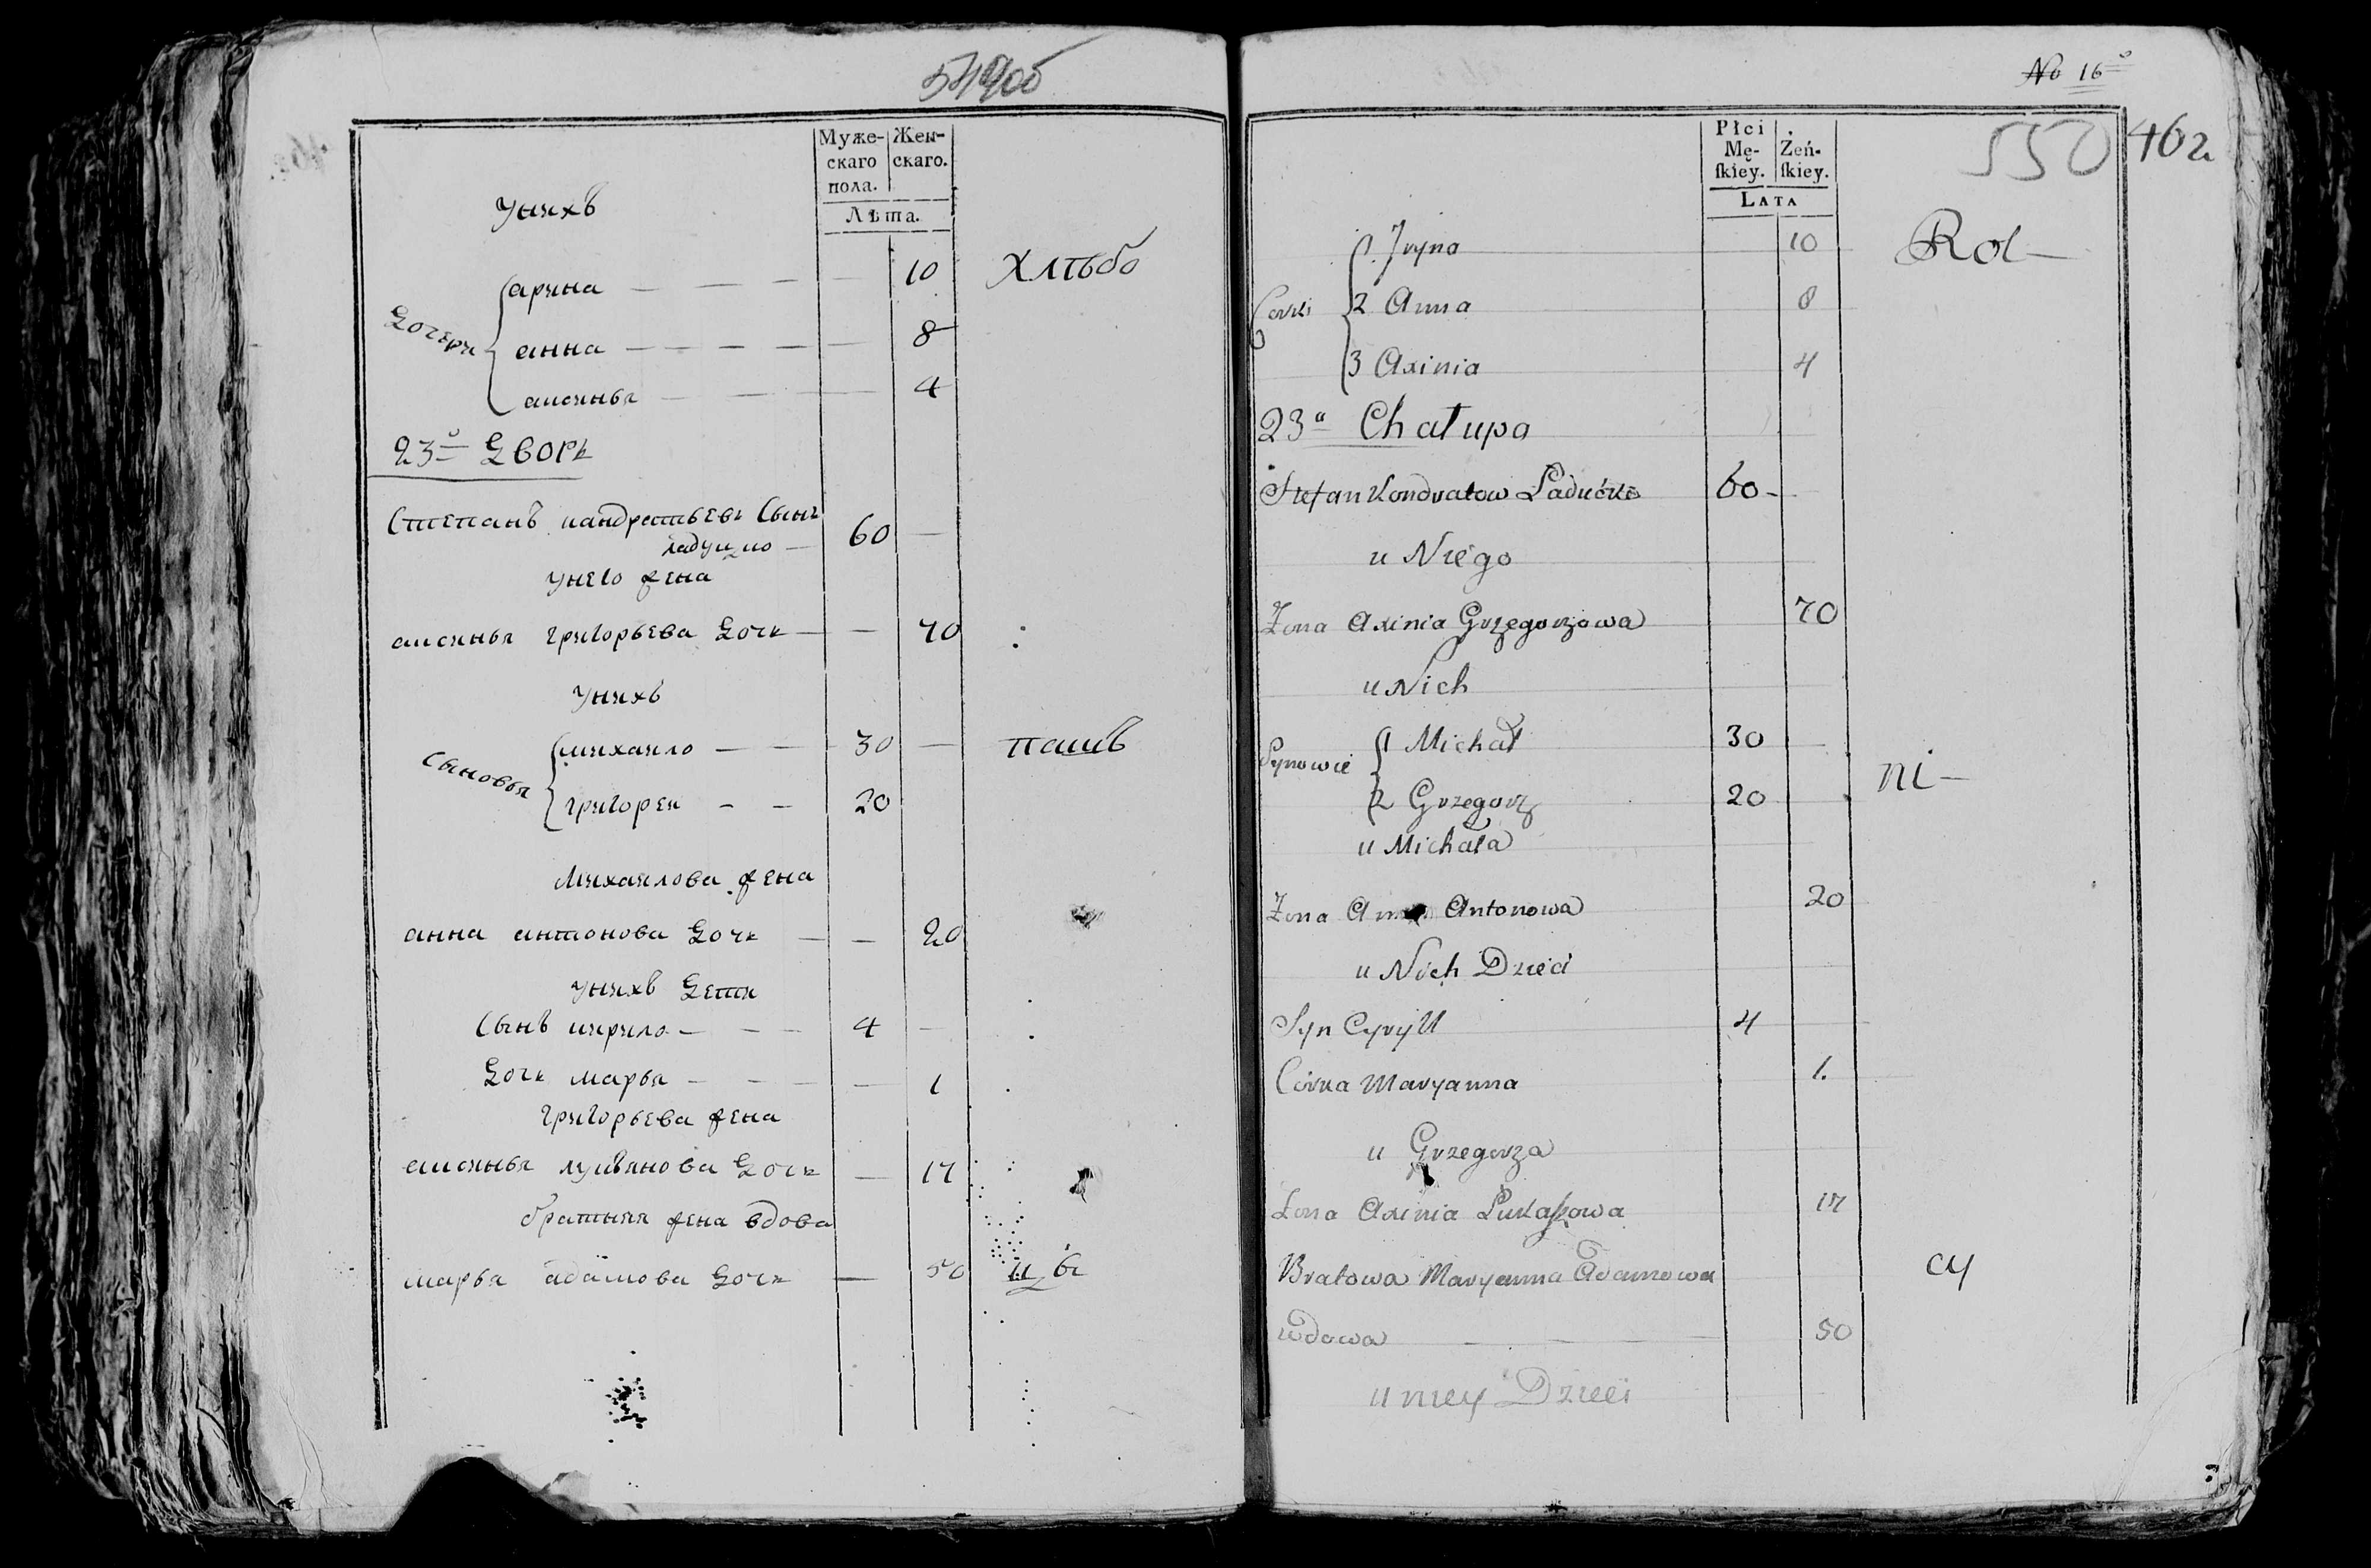 549об
Муже-
скаго
пола.
Жен-
скаго.
Лѣта.
унихъ
Дочери
арина — — — — 10 хлѣбо
анна — — — — 8
аксинья — — — 4
23й дворъ
Степанъ кандратьевъ Сынъ
ладутко — 60 —
унего жена
аксинья григорьева дочь — — 70
унихъ
Сыновья
михаило — — 30 — пашъ
григореи — — 20
михаилова жена
анна антонова дочь — — 20
унихъ дети
Сынъ кирило — — — 4 —
дочь марья — — — — 1
григорьева жена
аксинья лукьянова дочь — 17
братняя жена вдова
марья адамова дочь — 50 цы
No 16
550
462
Płci
Mę-
ſkiey.
Żeń-
ſkiey.
Lata
Corki
1. Jryna 10 Rol—
2 Anna 8
3 Axinia 4
23a Chałupa
Stefan Kondratow Ladućko 60 -
u Niego
Żona Axinia Grzegorzowa 70
u Nich
Synowie
1 Michał 30
2 Grzegorz 20 ni—
u Michała
Żona Anna Antonowa 20
u Nich Dzieci
Syn Cyryll 4
Córka Maryanna 1.
u Grzegorza
Żona Axinia Łukaſzowa 17
Bratowa Maryanna Adamowa cy
wdowa — 50
u niey Dzieci